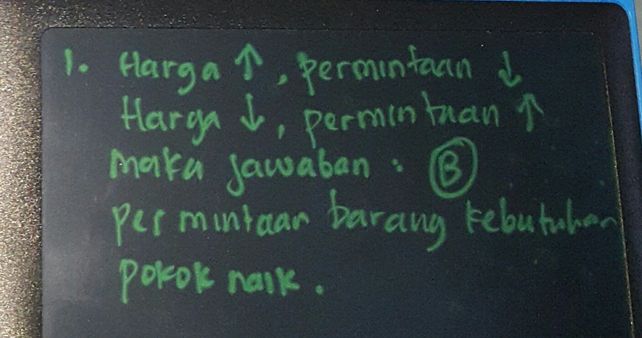 1. Harga ↑, permintaan ↓
Harga ↓, permintaan ↑
Maka jawaban : B
permintaan barang kebutuhan
pokok naik.